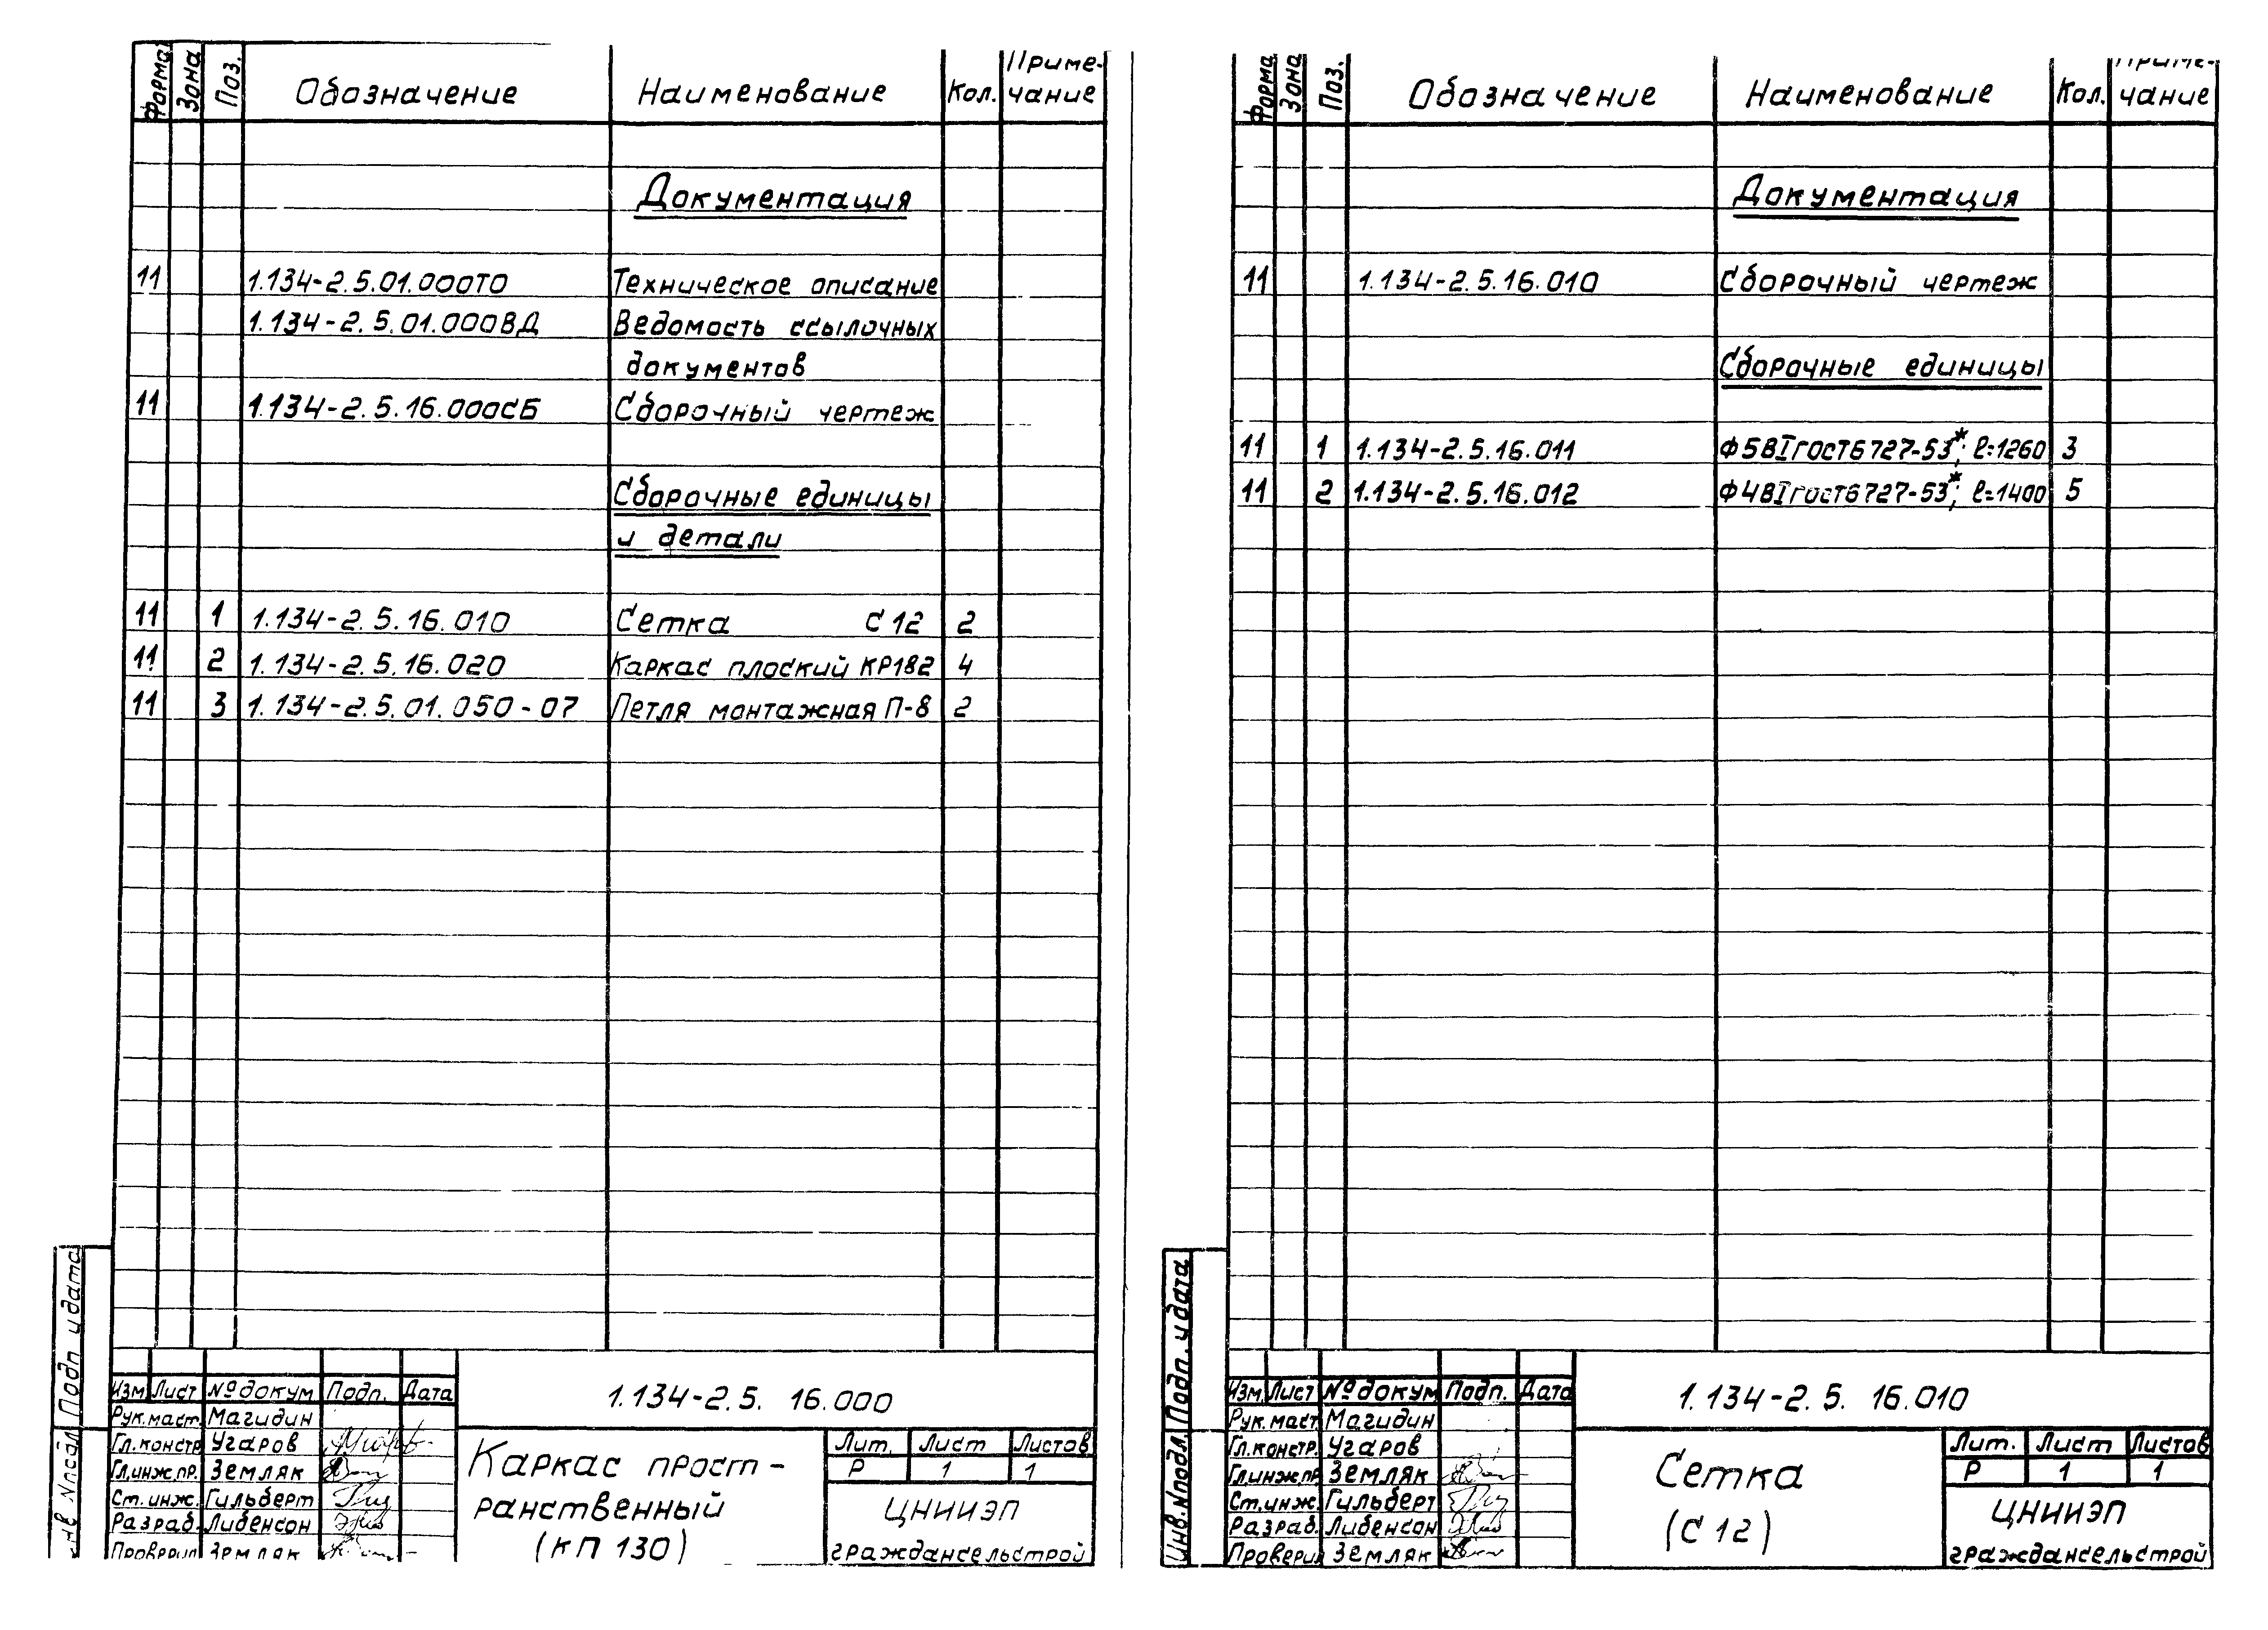 Форма Зона Поз. Обозначение Наименование Кол. Приме-
чание
Документация
11 1.134-2.5.01.000ТО Техническое описание
1.134-2.5.01.000ВД Ведомость ссылочных
документов
11 1.134-2.5.16.000СБ Сборочный чертеж
Сборочные единицы
и детали
11 1 1.134-2.5.16.010 Сетка С12 2
11 2 1.134-2.5.16.020 Каркас плоский КР182 4
11 3 1.134-2.5.01.050-07 Петля монтажная П-8 2
Подп и дата
1.134-2.5. 16.000
Изм Лист № докум Подп. Дата
Рук.маст. Магидин
Гл.констр Угаров
Гл.инж.пр. Земляк
Ст.инж. Гильберт
Разраб. Либенсон
Проверил Земляк
Каркас прост-
ранственный
(КП 130)
Лит. Лист Листов
Р 1 1
ЦНИИЭП
граждансельстрой
Форма Зона Поз. Обозначение Наименование Кол. Приме-
чание
Документация
11 1.134-2.5.16.010 Сборочный чертеж
Сборочные единицы
11 1 1.134-2.5.16.011 Ф5ВI ГОСТ6727-53*; ℓ=1260 3
11 2 1.134-2.5.16.012 Ф4ВI ГОСТ6727-53*; ℓ=1400 5
Инв.№подл. Подп. и дата
1.134-2.5. 16.010
Изм. Лист № докум Подп. Дата
Рук.маст Магидин
Гл.констр. Угаров
Гл.инж.пр Земляк
Ст.инж. Гильберт
Разраб. Либенсон
Проверил Земляк
Сетка
(С 12)
Лит. Лист Листов
Р 1 1
ЦНИИЭП
граждансельстрой